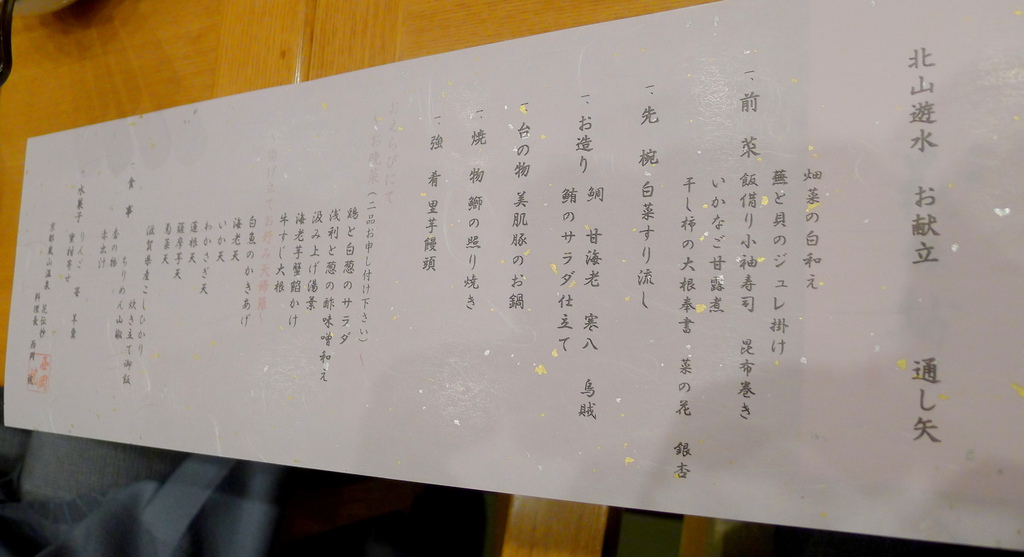 北山遊水 お献立 通し矢
畑菜の白和え
蕪と貝のジュレ掛け
一、前 菜 飯借り小袖寿司 昆布巻き
いかなご甘露煮
干し柿の大根奉書 菜の花 銀杏
一、先 椀 白菜すり流し
一、お造り 鯛 甘海老 寒八 烏賊
鮪のサラダ仕立て
一、台の物 美肌豚のお鍋
一、焼 物 鰤の照り焼き
一、強 肴 里芋饅頭
おくらびにて
(二品お申し付け下さい)
鶏と白葱のサラダ
浅利と葱の酢味噌和え
汲み上げ湯葉
海老芋蟹餡かけ
牛すじ大根
白魚のかきあげ
海老天
いか天
わかさぎ天
蓮根天
薩摩芋天
菊菜天
滋賀県産こしひかり
一、食 事 ちりめん山椒 炊き立て御飯
香の物
赤出汁
一、水菓子 りんご 苺
京都嵐山温泉 花伝抄
料理長